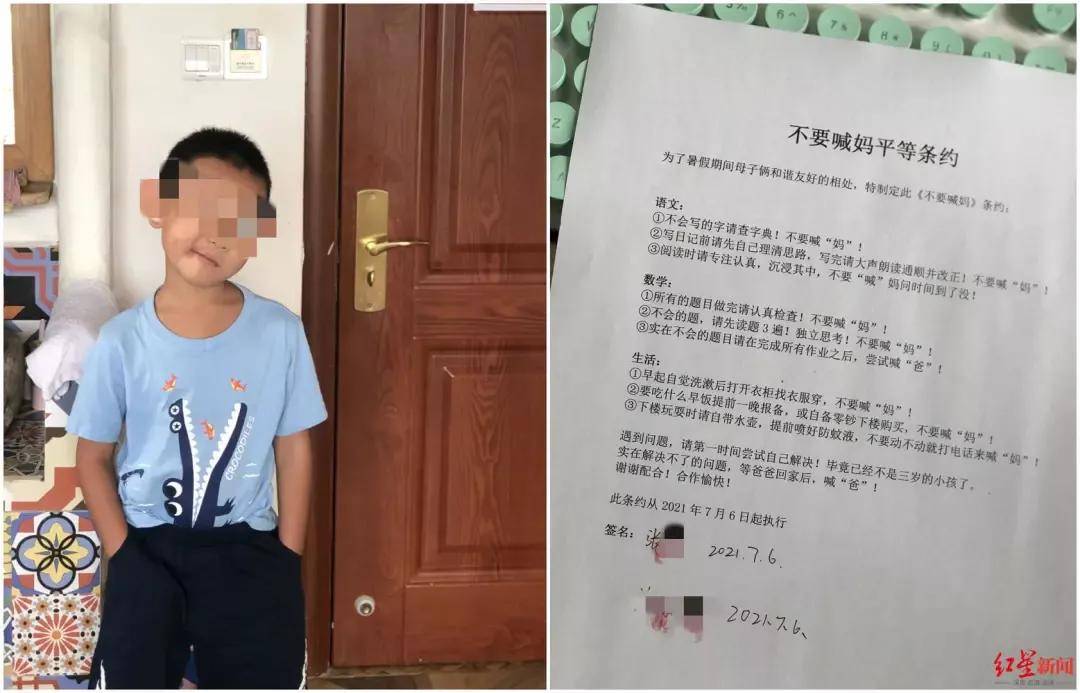 CROCODILES
不要喊妈平等条约
为了暑假期间母子俩和谐友好的相处，特制定此《不要喊妈》条约：
语文：
①不会写的字请查字典！不要喊“妈”！
②写日记前请先自己理清思路，写完请大声朗读通顺并改正！不要喊“妈”！
③阅读时请专注认真，沉浸其中，不要“喊”妈问时间到了没！
数学：
①所有的题目做完请认真检查！不要喊“妈”！
②不会的题，请先读题3遍！独立思考！不要喊“妈”！
③实在不会的题目请在完成所有作业之后，尝试喊“爸”！
生活：
①早起自觉洗漱后打开衣柜找衣服穿，不要喊“妈”！
②要吃什么早饭提前一晚报备，或自备零钞下楼购买，不要喊“妈”！
③下楼玩耍时请自带水壶，提前喷好防蚊液，不要动不动就打电话来喊“妈”！
遇到问题，请第一时间尝试自己解决！毕竟已经不是三岁的小孩了。
实在解决不了的问题，等爸爸回家后，喊“爸”！
谢谢配合！合作愉快！
此条约从2021年7月6日起执行
签名：张 2021.7.6.
2021.7.6、
红星新闻